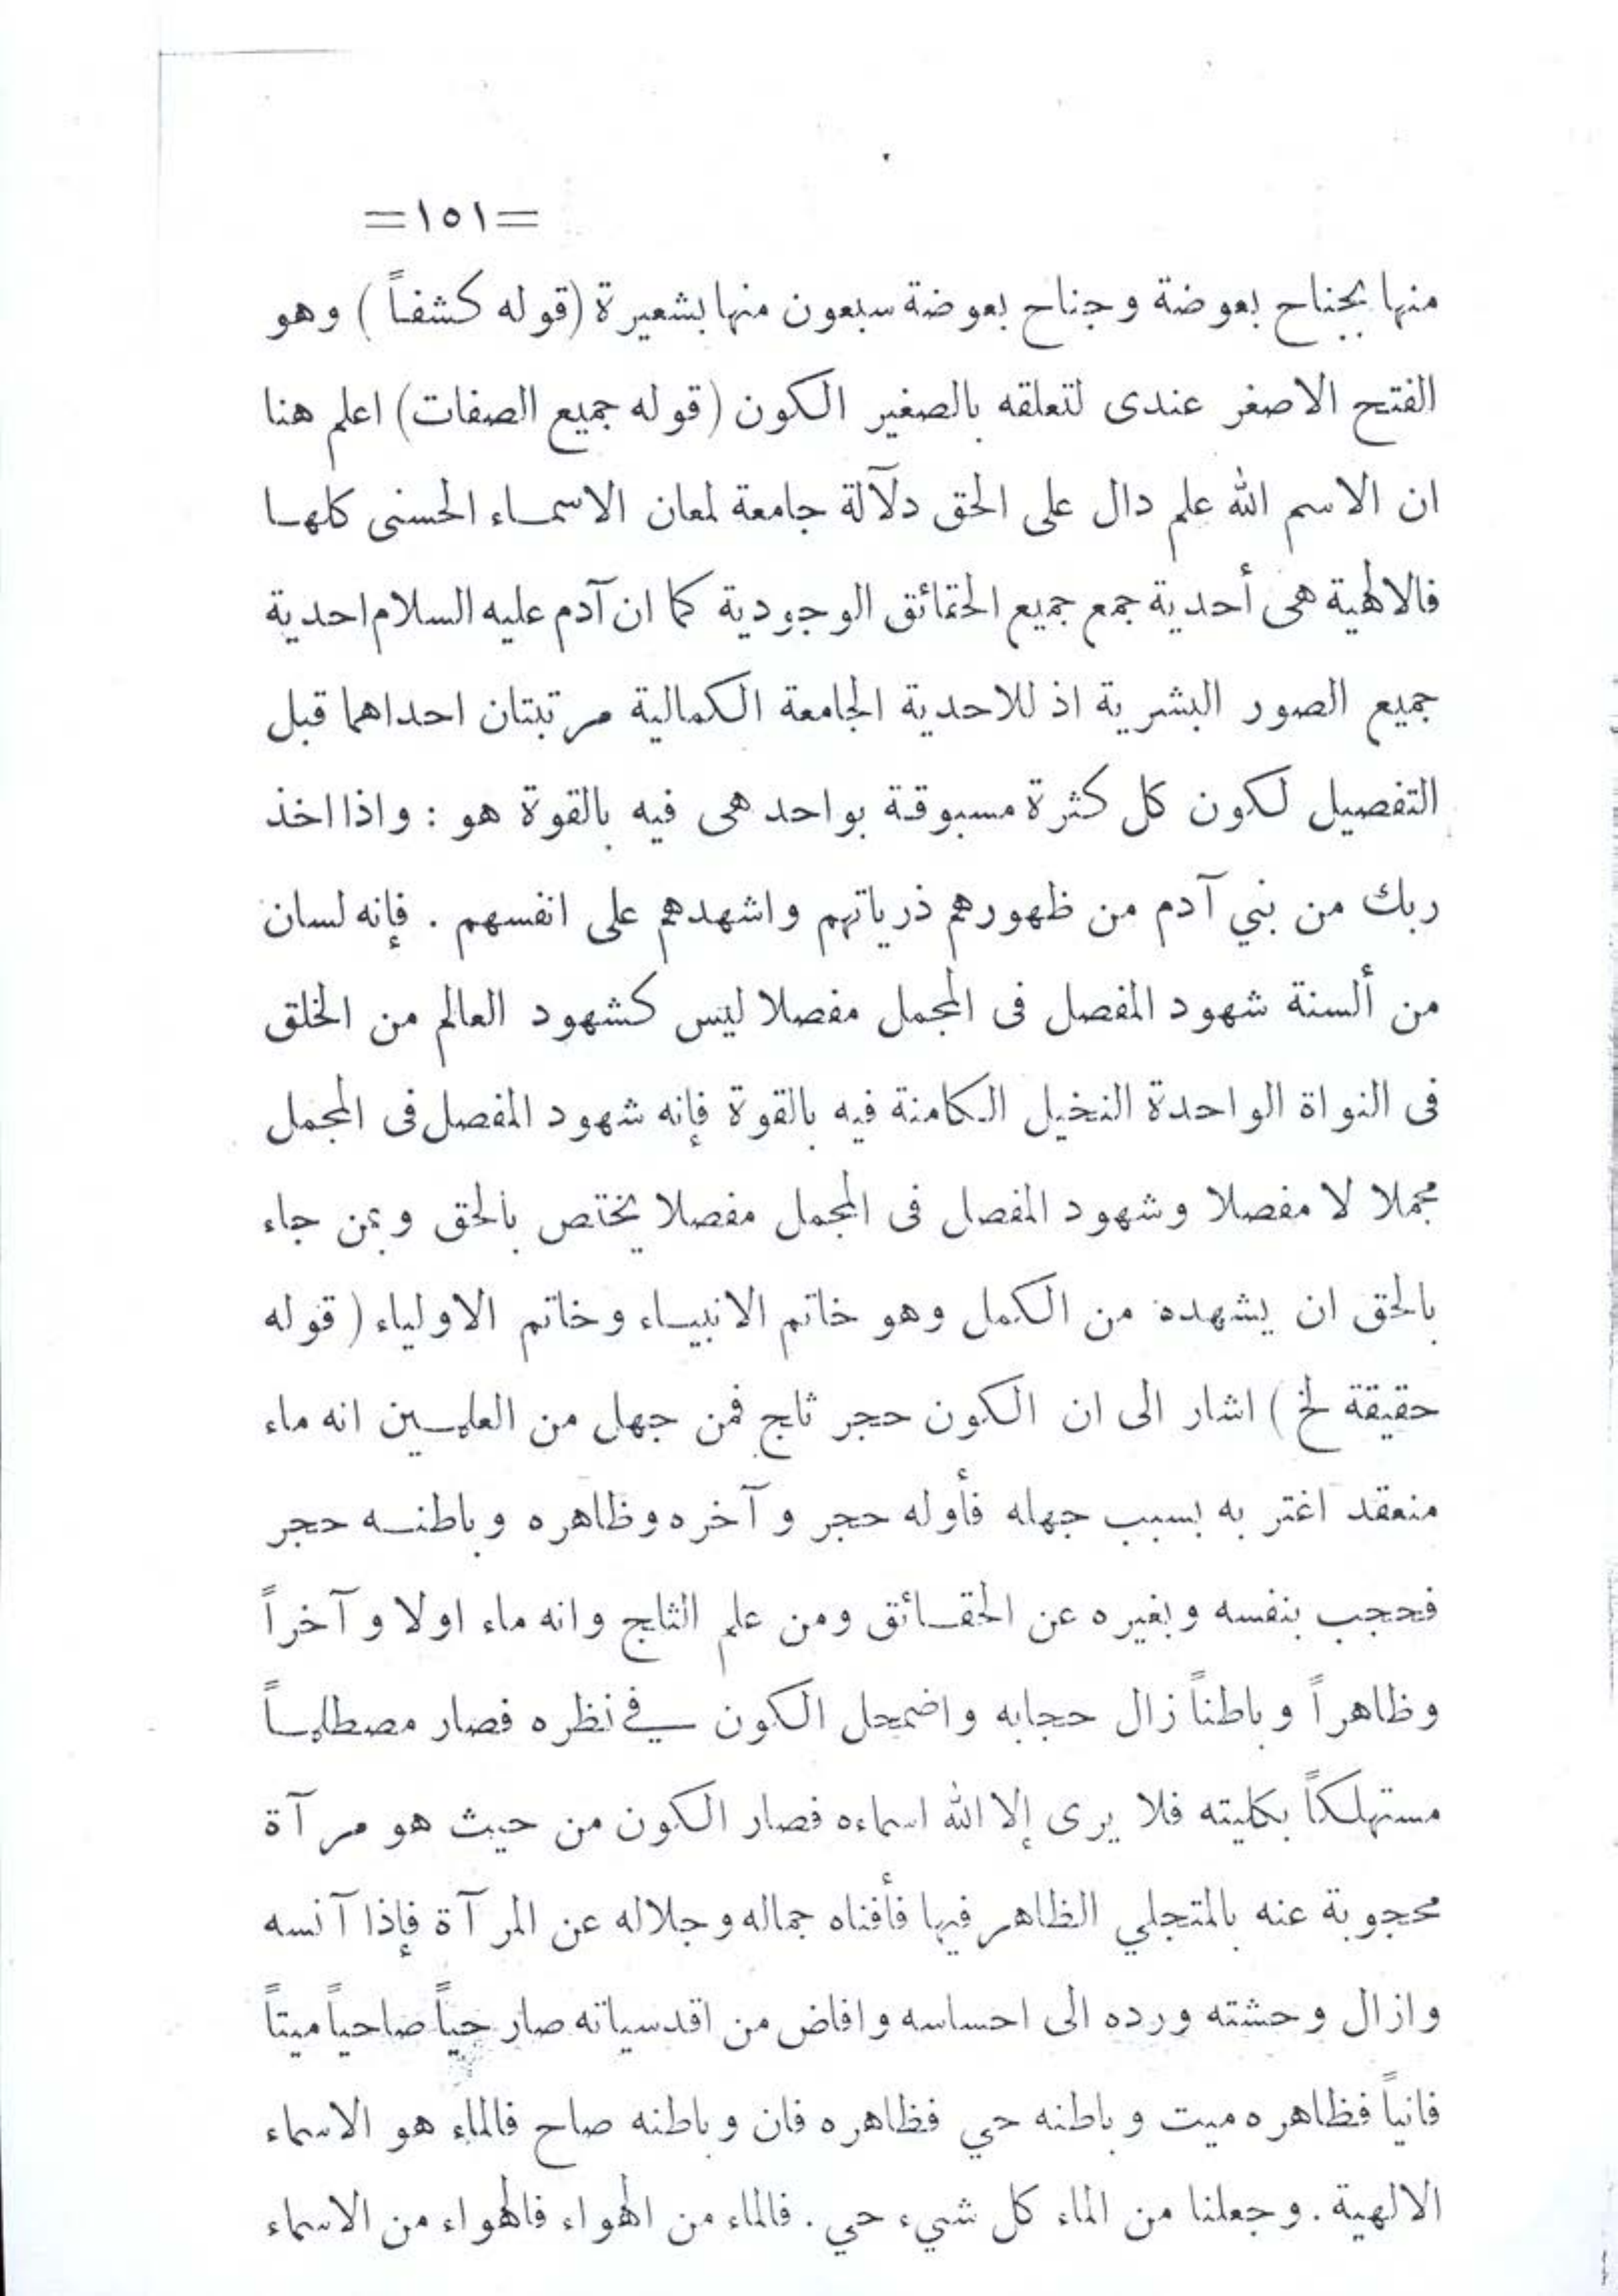 =١٥١=
منها بجناح بعوضة وجناح بعوضة سبعون منها بشعيرة (قوله كشفاً) وهو
الفتح الاصغر عندى لتعلقه بالصغير الكون (قوله جميع الصفات) اعلم هنا
ان الاسم الله علم دال على الحق دلآلة جامعة لمعان الاسماء الحسنى كلها
فالالهية هى أحدية جمع جميع الحقائق الوجودية كما ان آدم عليه السلام احدية
جميع الصور البشرية اذ للاحدية الجامعة الكمالية مرتبتان احداهما قبل
التفصيل لكون كل كثرة مسبوقة بواحد هى فيه بالقوة هو : واذا اخذ
ربك من بني آدم من ظهورهم ذرياتهم واشهدهم على انفسهم . فإنه لسان
من ألسنة شهود المفصل فى المجمل مفصلا ليس كشهود العالم من الخلق
فى النواة الواحدة النخيل الكامنة فيه بالقوة فإنه شهود المفصل فى المجمل
مجملا لا مفصلا وشهود المفصل فى المجمل مفصلا يختص بالحق وبمن جاء
بالحق ان يشهده من الكمل وهو خاتم الانبياء وخاتم الاولياء (قوله
حقيقة لخ) اشار الى ان الكون حجر ثلج فمن جهل من العلمين انه ماء
منعقد اغتر به بسبب جهله فأوله حجر وآخره وظاهره وباطنه حجر
فحجب بنفسه وبغيره عن الحقائق ومن علم الثلج وانه ماء اولا وآخراً
وظاهراً وباطناً زال حجابه واضمحل الكون في نظره فصار مصطلماً
مستهلكاً بكليته فلا يرى إلا الله اسماءه فصار الكون من حيث هو مرآة
محجوبة عنه بالمتجلي الظاهر فيها فأفناه جماله وجلاله عن المرآة فإذا آنسه
وازال وحشته ورده الى احساسه وافاض من اقدسياته صار حياً صاحياً ميتاً
فانياً فظاهره ميت وباطنه حي فظاهره فان وباطنه صاح فالماء هو الاسماء
الالهية . وجعلنا من الماء كل شيء حي . فالماء من الهواء فالهواء من الاسماء